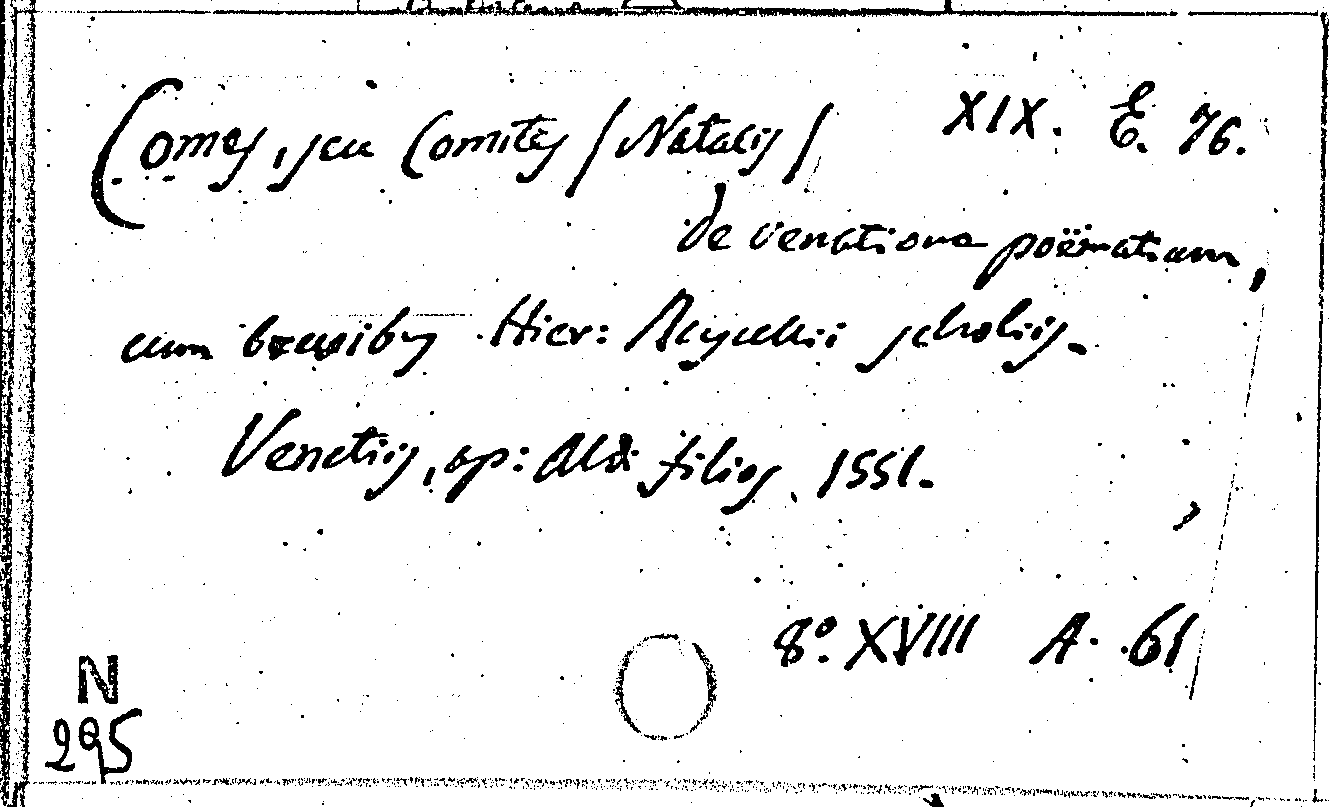 Comes, seu Comites / Natalis / XIX. E. 76.
de venatione poëmatium,
cum brevibus Hier: Ruscellii scholiis.
Venetiis, ap: Aldi filios, 1551.
8°. XVIII A. 61
N
295